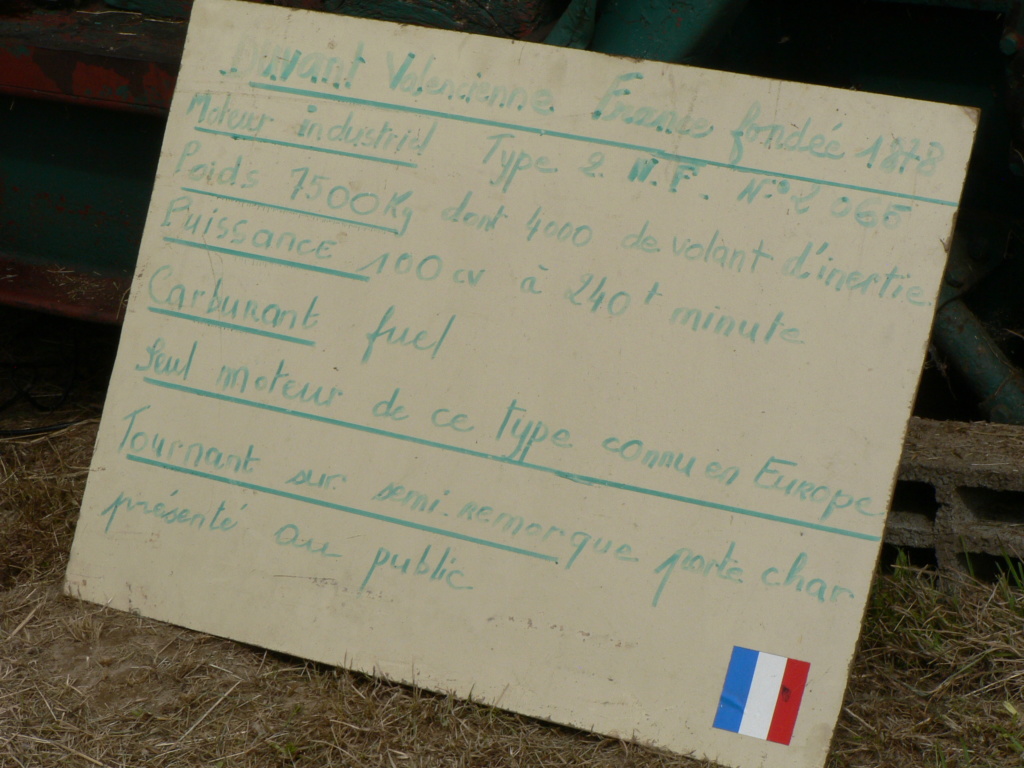 Duvant Valencienne France fondée 1878
Moteur industriel Type 2 N.F. N° 2065
Poids 7500Kg dont 4000 de volant d'inertie
Puissance 100 cv à 240 t minute
Carburant fuel
Seul moteur de ce type connu en Europe
Tournant sur semi-remorque porte char
présenté au public